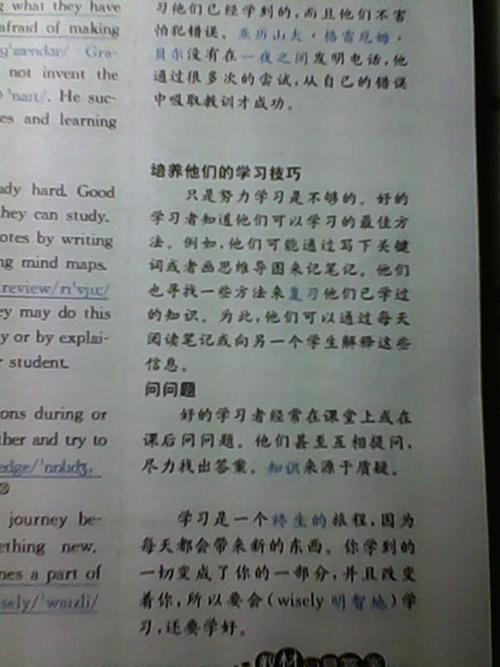 g what they have
afraid of making
Gra-
not invent the
He suc-
es and learning
udy hard. Good
they can study.
otes by writing
ng mind maps.
review/rɪ'vjuː/
ey may do this
y or by explai-
r student.
ons during or
ther and try to
edge/'nɒlɪdʒ,
journey be-
ething new.
nes a part of
sely/'waɪzli/
习他们已经学到的,而且他们不害
怕犯错误。亚历山大·格雷厄姆·
贝尔没有在一夜之间发明电话,他
通过很多次的尝试,从自己的错误
中吸取教训才成功。
培养他们的学习技巧
只是努力学习是不够的。好的
学习者知道他们可以学习的最佳方
法。例如,他们可能通过写下关键
词或者画思维导图来记笔记。他们
也寻找一些方法来复习他们已学过
的知识。为此,他们可以通过每天
阅读笔记或向另一个学生解释这些
信息。
问问题
好的学习者经常在课堂上或在
课后问问题。他们甚至互相提问,
尽力找出答案。知识来源于质疑。
学习是一个终生的旅程,因为
每天都会带来新的东西。你学到的
一切变成了你的一部分,并且改变
着你,所以要会(wisely 明智地)学
习,还要学好。
教材